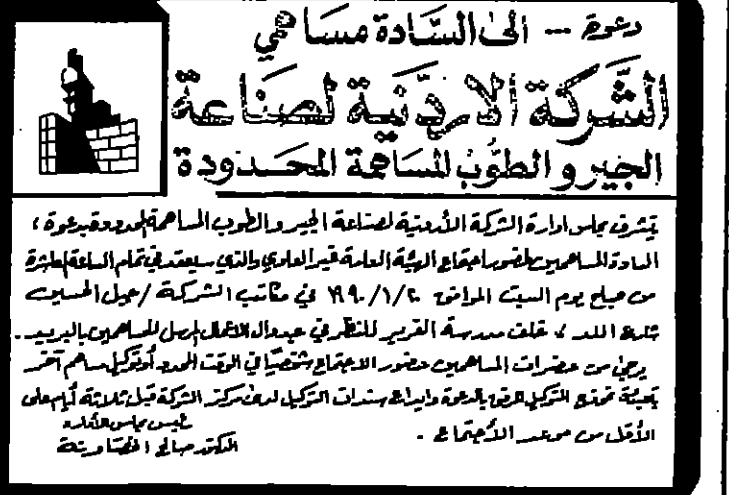 دعوة -- الى السّادة مساهمي
الشّركة الاردنيّة لصناعة
الجير والطوب المساهمة المحدودة
يتشرف مجلس ادارة الشركة الأردنية لصناعة الجير والطوب المساهمة المحدودة بدعوة
السادة المساهمين لحضور اجتماع الهيئة العامة غير العادي والذي سيعقد في تمام الساعة العاشرة
من صباح يوم السبت الموافق ١٩٩٠/١/٢٠ في مكاتب الشركة / جبل الحسين
شارع اللد ، خلف مدرسة الفرير للنظر في جدول الأعمال المرسل للمساهمين بالبريد ..
يرجى من حضرات المساهمين حضور الاجتماع شخصيًا في الوقت المحدد أو توكيل مساهم آخر
بتعبئة نموذج التوكيل المرفق بالدعوة وايداع سندات التوكيل لدى مركز الشركة قبل ثلاثة أيام على
الأقل من موعد الأجتماع .
رئيس مجلس الأدارة
الدكتور صالح الخصاونة